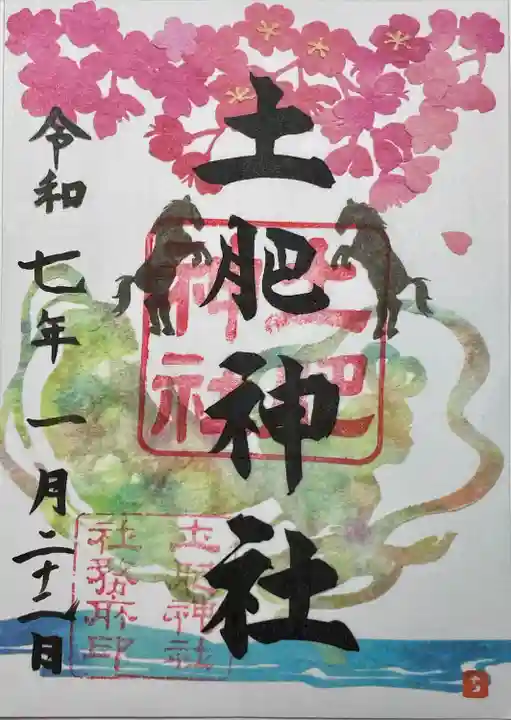 土肥神社
令和七年一月二十二日
土肥
神社
土肥神社
社務所印